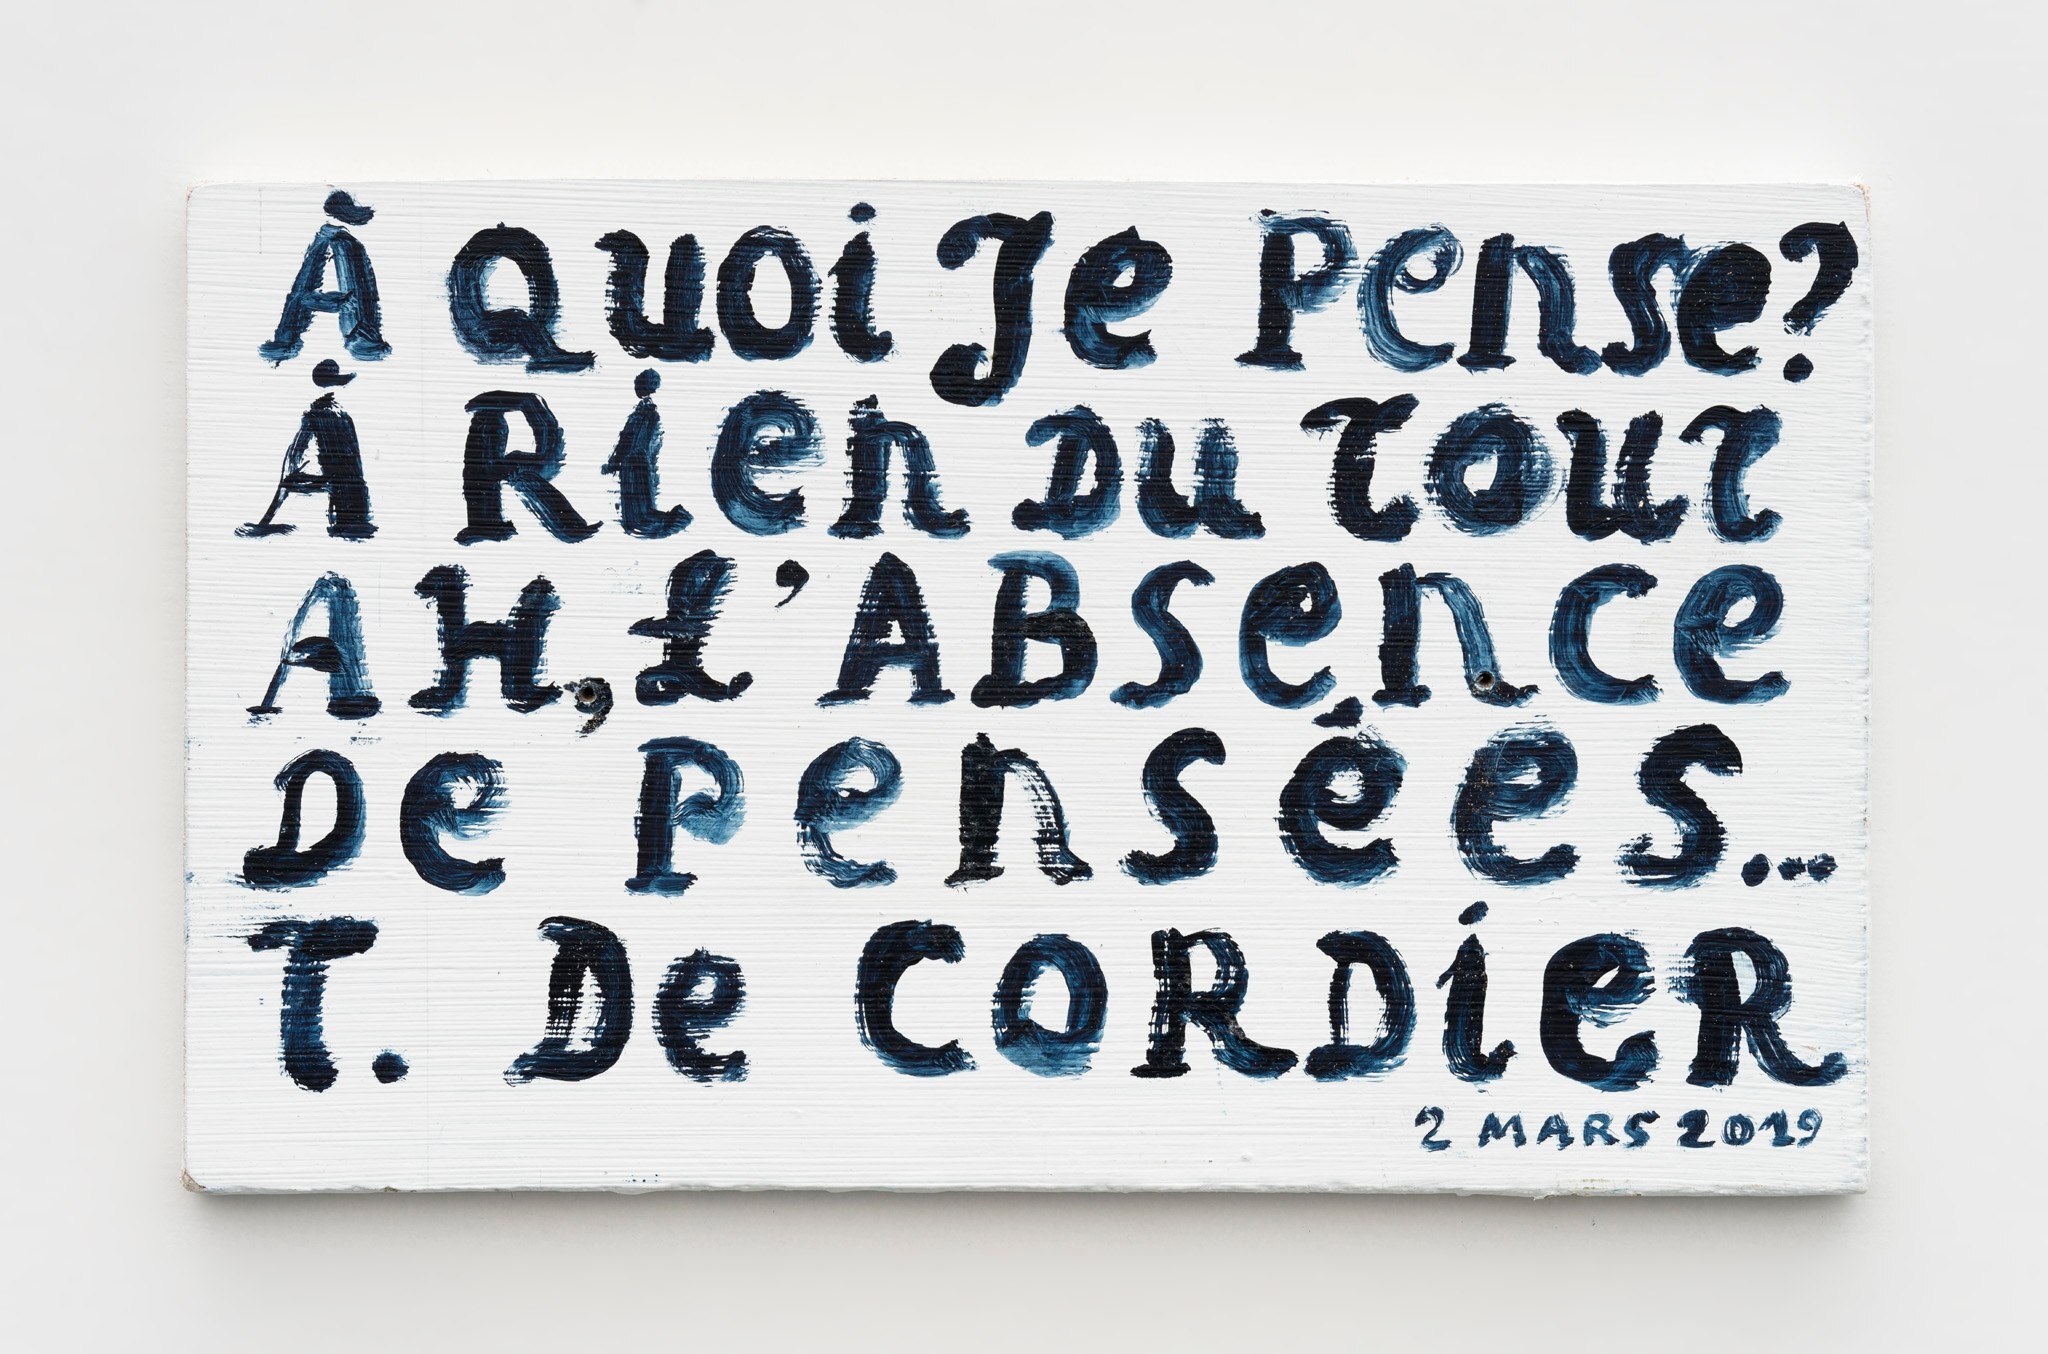 À Quoi Je Pense?
À Rien Du Tout
AH, L'ABsence
De Pensées...
T. De CORDieR
2 MARS 2019